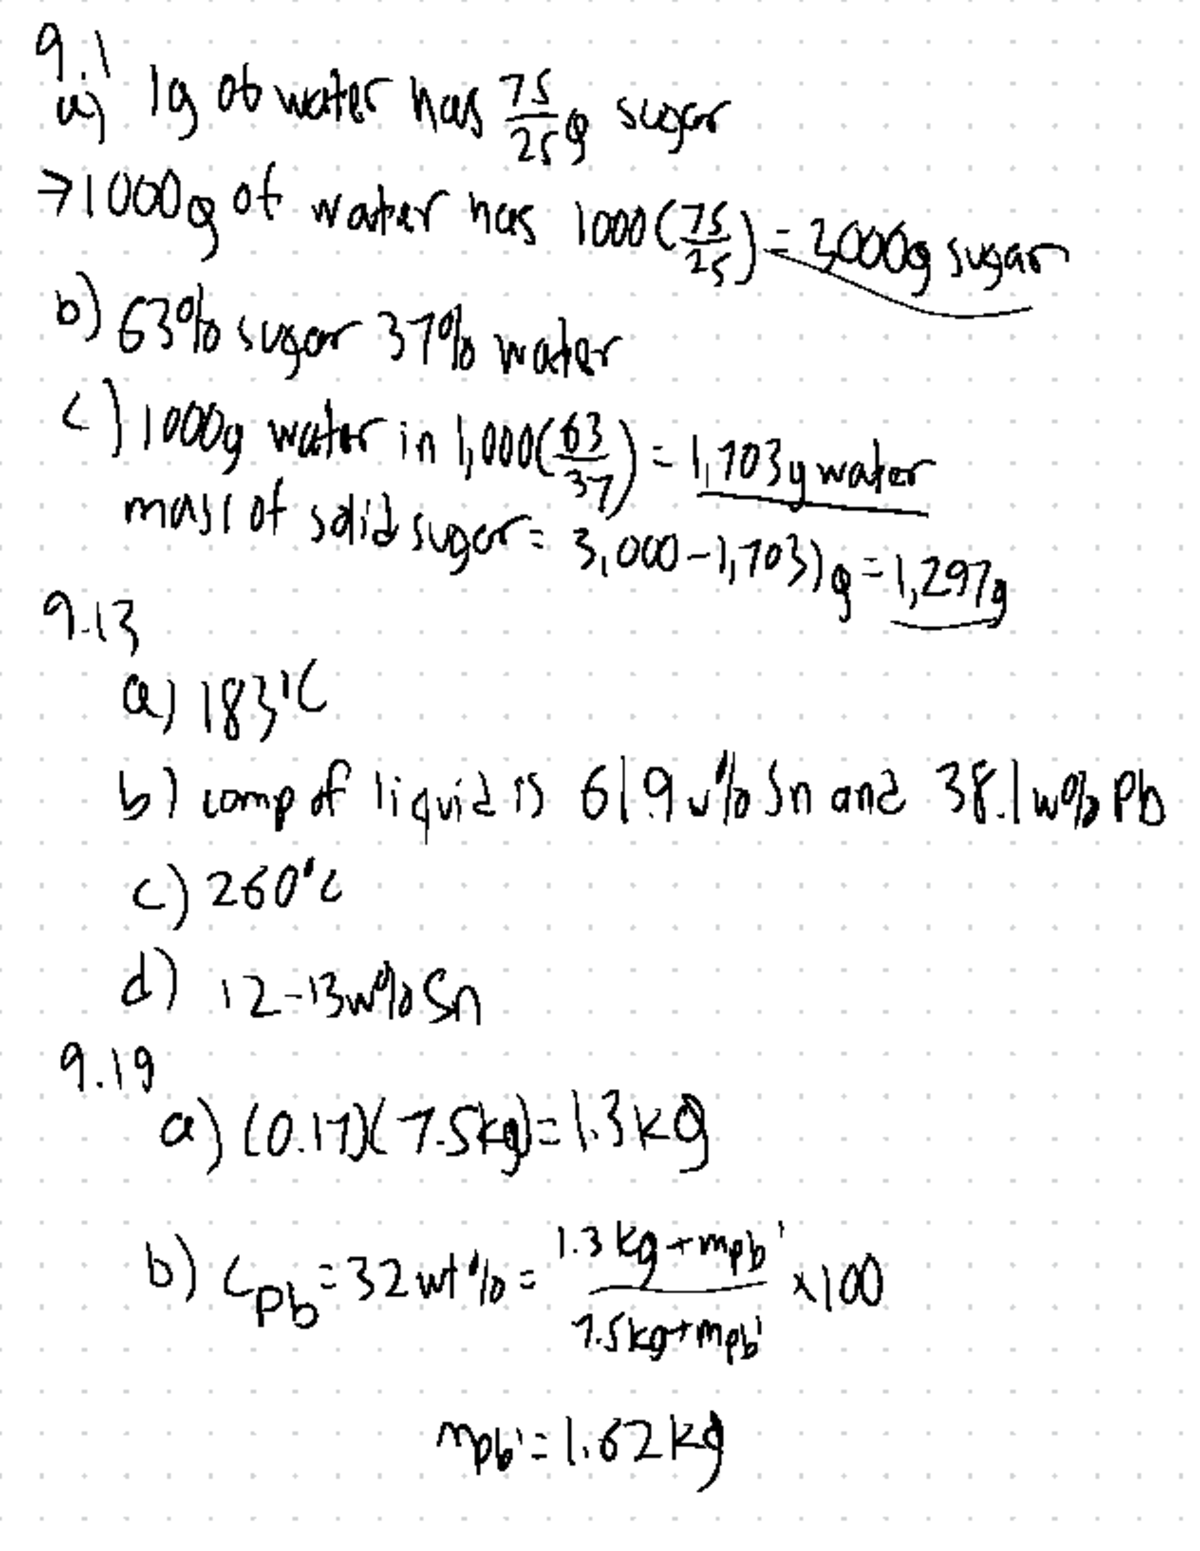 9.1
a) 1g of water has 75/25 g sugar
→1000g of water has 1000(75/25) = 3,000g sugar
b) 63% sugar 37% water
c) 1000g water in 1,000(63/37) = 1,703g water
mass of solid sugar = 3,000-1,703)g = 1,297g
9.13
a) 183°C
b) comp of liquid is 61.9 w% Sn and 38.1 w% Pb
c) 260°C
d) 12-13w% Sn
9.19
a) (0.17)(7.5kg) = 1.3kg
b) CPb = 32wt% = (1.3kg+mpb')/(7.5kg+mpb') ×100
mpb' = 1.62kg